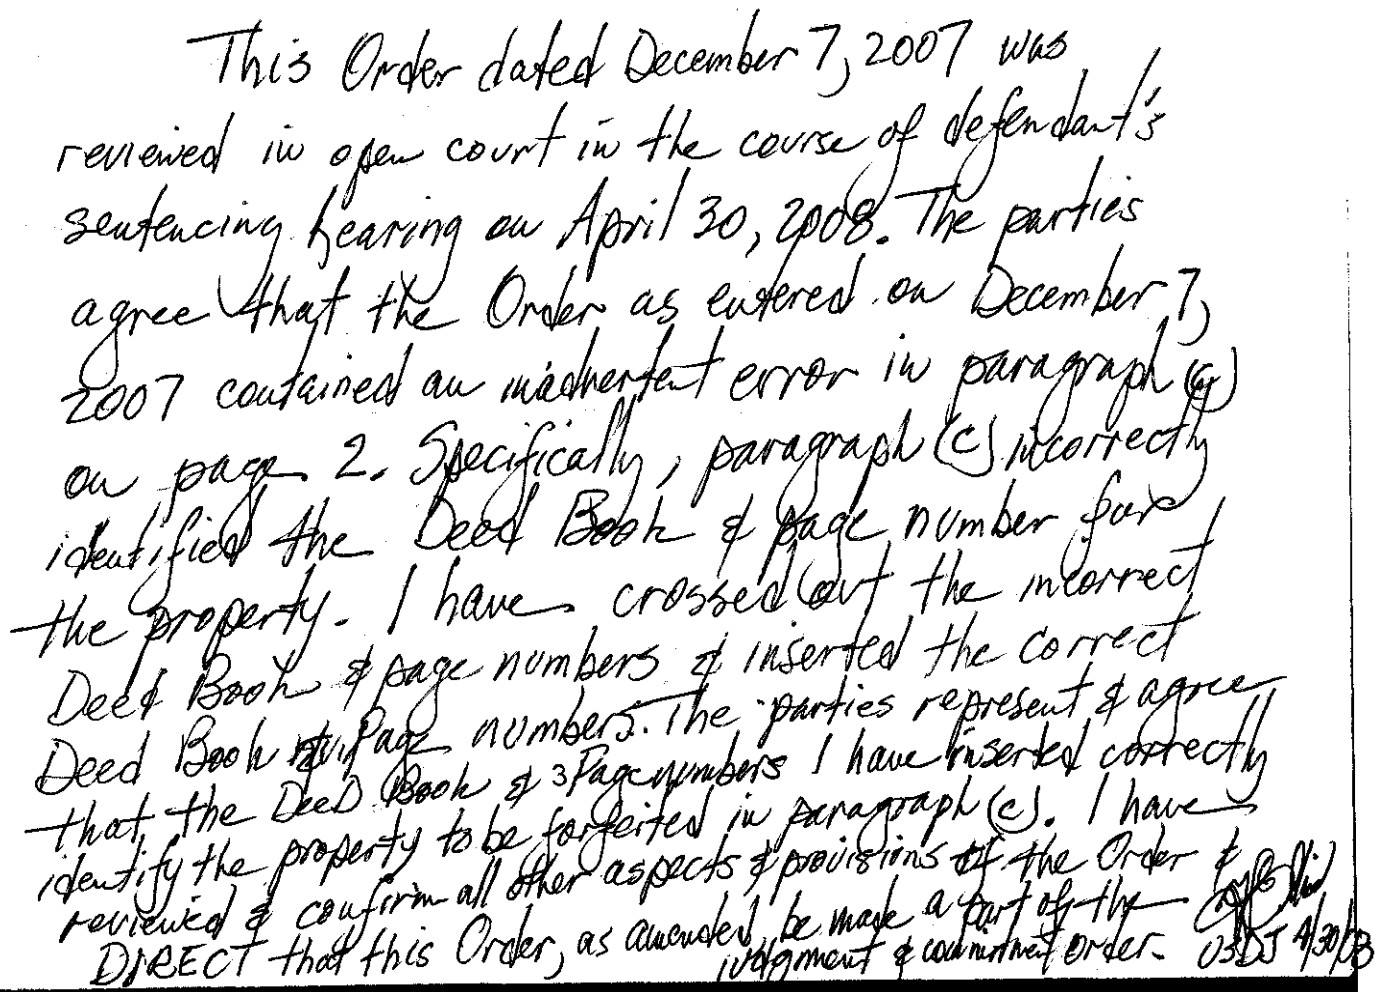 This Order dated December 7, 2007 was
reviewed in open court in the course of defendant's
sentencing hearing on April 30, 2008. The parties
agree that the Order as entered on December 7,
2007 contained an inadvertent error in paragraph (c)
on page 2. Specifically, paragraph (c) incorrectly
identified the Deed Book & page number for
the property. I have crossed out the incorrect
Deed Book & page numbers & inserted the correct
Deed Book Page numbers. The parties represent & agree
that the Deed Book & Page numbers I have inserted correctly
identify the property to be forfeited in paragraph (c). I have
reviewed & confirm all other aspects & provisions of the Order &
DIRECT that this Order, as amended, be made a part of the
judgment & commitment order. USDJ 4/30/08